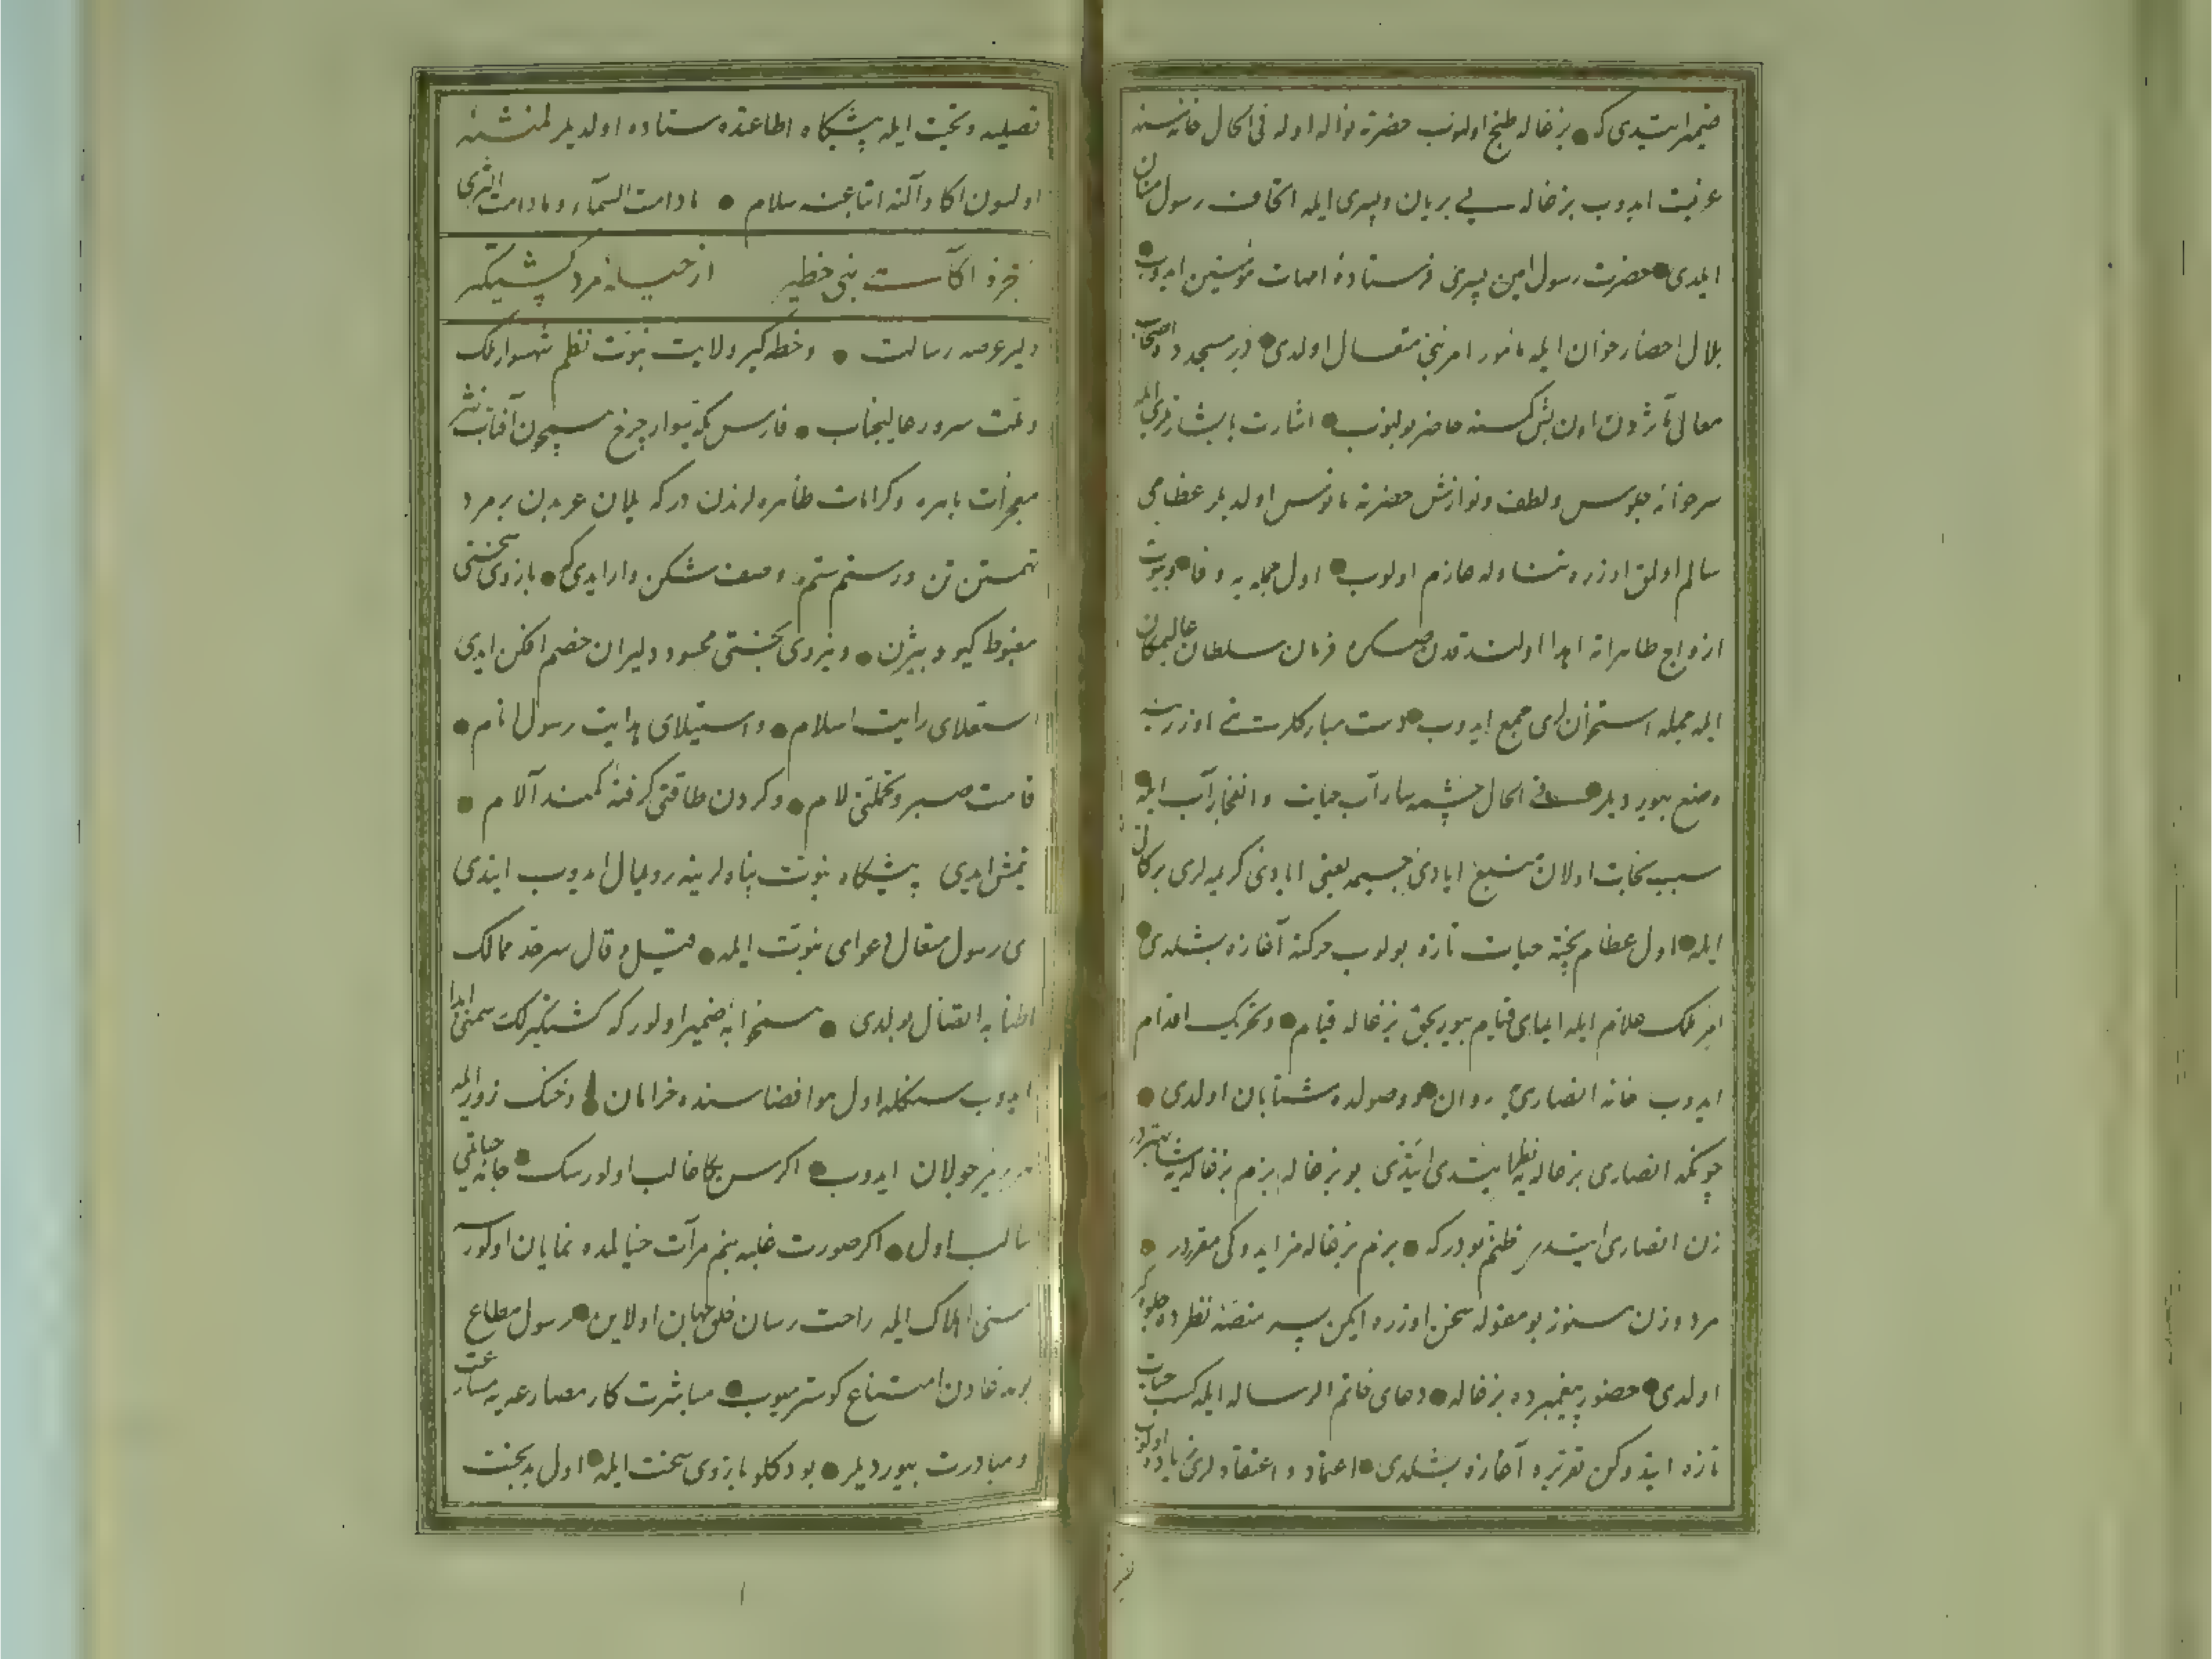 ضمیر ایتدی که بزغاله طبخ اولنوب حضرته نواله اوله فی الحال خانه سنه
عزیمت ایدوب بزغاله سی بریان و پسری ایله اتحاف رسول منان
ایلدی حضرت رسول امین پسرنی فرستاده امهات مؤمنین ایدوب
بلال احضار خوان ایله مأمور امر نبی متعال اولدی در مسجد و اصحاب
معالی مآثردن اون بش کسنه حاضر بولنوب اشارت با بشارتلری ایله
سر خوانه جلوس و لطف و نوازش حضرته مأنوس اولدیلر عظامی
سالم اولمق اوزره تناوله عازم اولوب اول جمله یه وفا و بیوت
ازواج طاهراته اهدا اولندقدن صکره فرمان سلطان عالیمکان
ایله جمله استخوانلری جمع ایدوب دست مبارکلرینی اوزرینه
وضع بیوردیلر فی الحال چشمه سار آب حیات و انفجار آب ایله
سبب نجات اولان منبع ایادئ جسیمه یعنی ایادئ کریمه لری برکاتی
ایله اول عظام پخته حیات تازه بولوب حرکته آغازه بشلدی
امر ملک علام ایله ایمای قیام بیوریجق بزغاله قیام و تحریک اقدام
ایدوب خانه انصاری یه روان و وصولده شتابان اولدی
چونکه انصاری بزغاله یه نظر ایتدی ایتدی بو بزغاله بزم بزغاله یه مشابهدر
زن انصاری ایتدی ظنم بودر که بزم بزغاله مز ایدوکی مقرردر
مرد و زن هنوز بو مقوله سخن اوزره ایکن پسر منصه نظرده جلوه کر
اولدی حضور پیغمبرده بزغاله دعای خاتم الرساله ایله کسب حیات
تازه ایتدوکن تقریره آغازه بشلدی اعتماد و اعتقادلری زیاده اولوب
تصلیه و تحیت ایله پیشکاه اطاعتده ستاده اولدیلر
اولسون اکا و آلنه اتباعنه سلام مادامت السماء و مادامت الثری
از مرد کشتیکیر
دلیر عرصه رسالت و خطه کیر ولایت نبوت نظم شهسوار ملک
و ملت سرور عالیجناب فارس یکه سوار چرخ همچون آفتاب نثر
معجزات باهره و کرامات ظاهره لرندن در که بر مرد
تهمتن تن و رستم ستم و صف شکن وار ایدی که بازوی سختی
مغبوط کیو و بیژن و نیروی بختی محسود دلیران خصم افکن ایدی
استعلای رایت اسلام و استیلای هدایت رسول انام
قامت صبر و تحملنی لام و کردن طاقتی کرفته کمند آلام
ایتمش ایدی پیشکاه نبوت پناهلرینه رومال ایدوب ایتدی
ای رسول متعال دعوای نبوت ایله قیل و قال سرحد ممالک
اطنابه انتقال بولدی
ایدوب سنکله اول هوا فضاسنده خرامان و خنک زور ایله
جولان ایدوب اکر سن بکا غالب اولورسک
سالب اول اکر صورت غلبه بنم مرآت خیالمده نمایان اولور
سنی اهلاک ایله راحت رسان خلق جهان اولاین رسول مطاع
بو مدعادن امتناع کوسترمیوب مباشرت کار مصارعه یه مسارعت
و مبادرت بیوردیلر بودکلو بازوی سخت ایله اول بدبخت